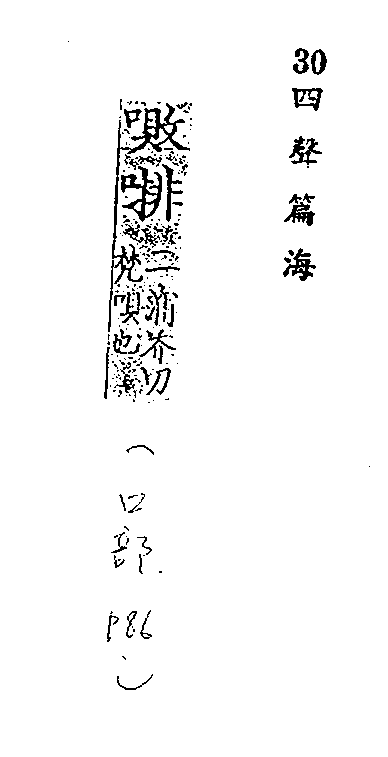 30
四聲篇海
㗑
二蒲芥切
梵唄也
(口部 P86)